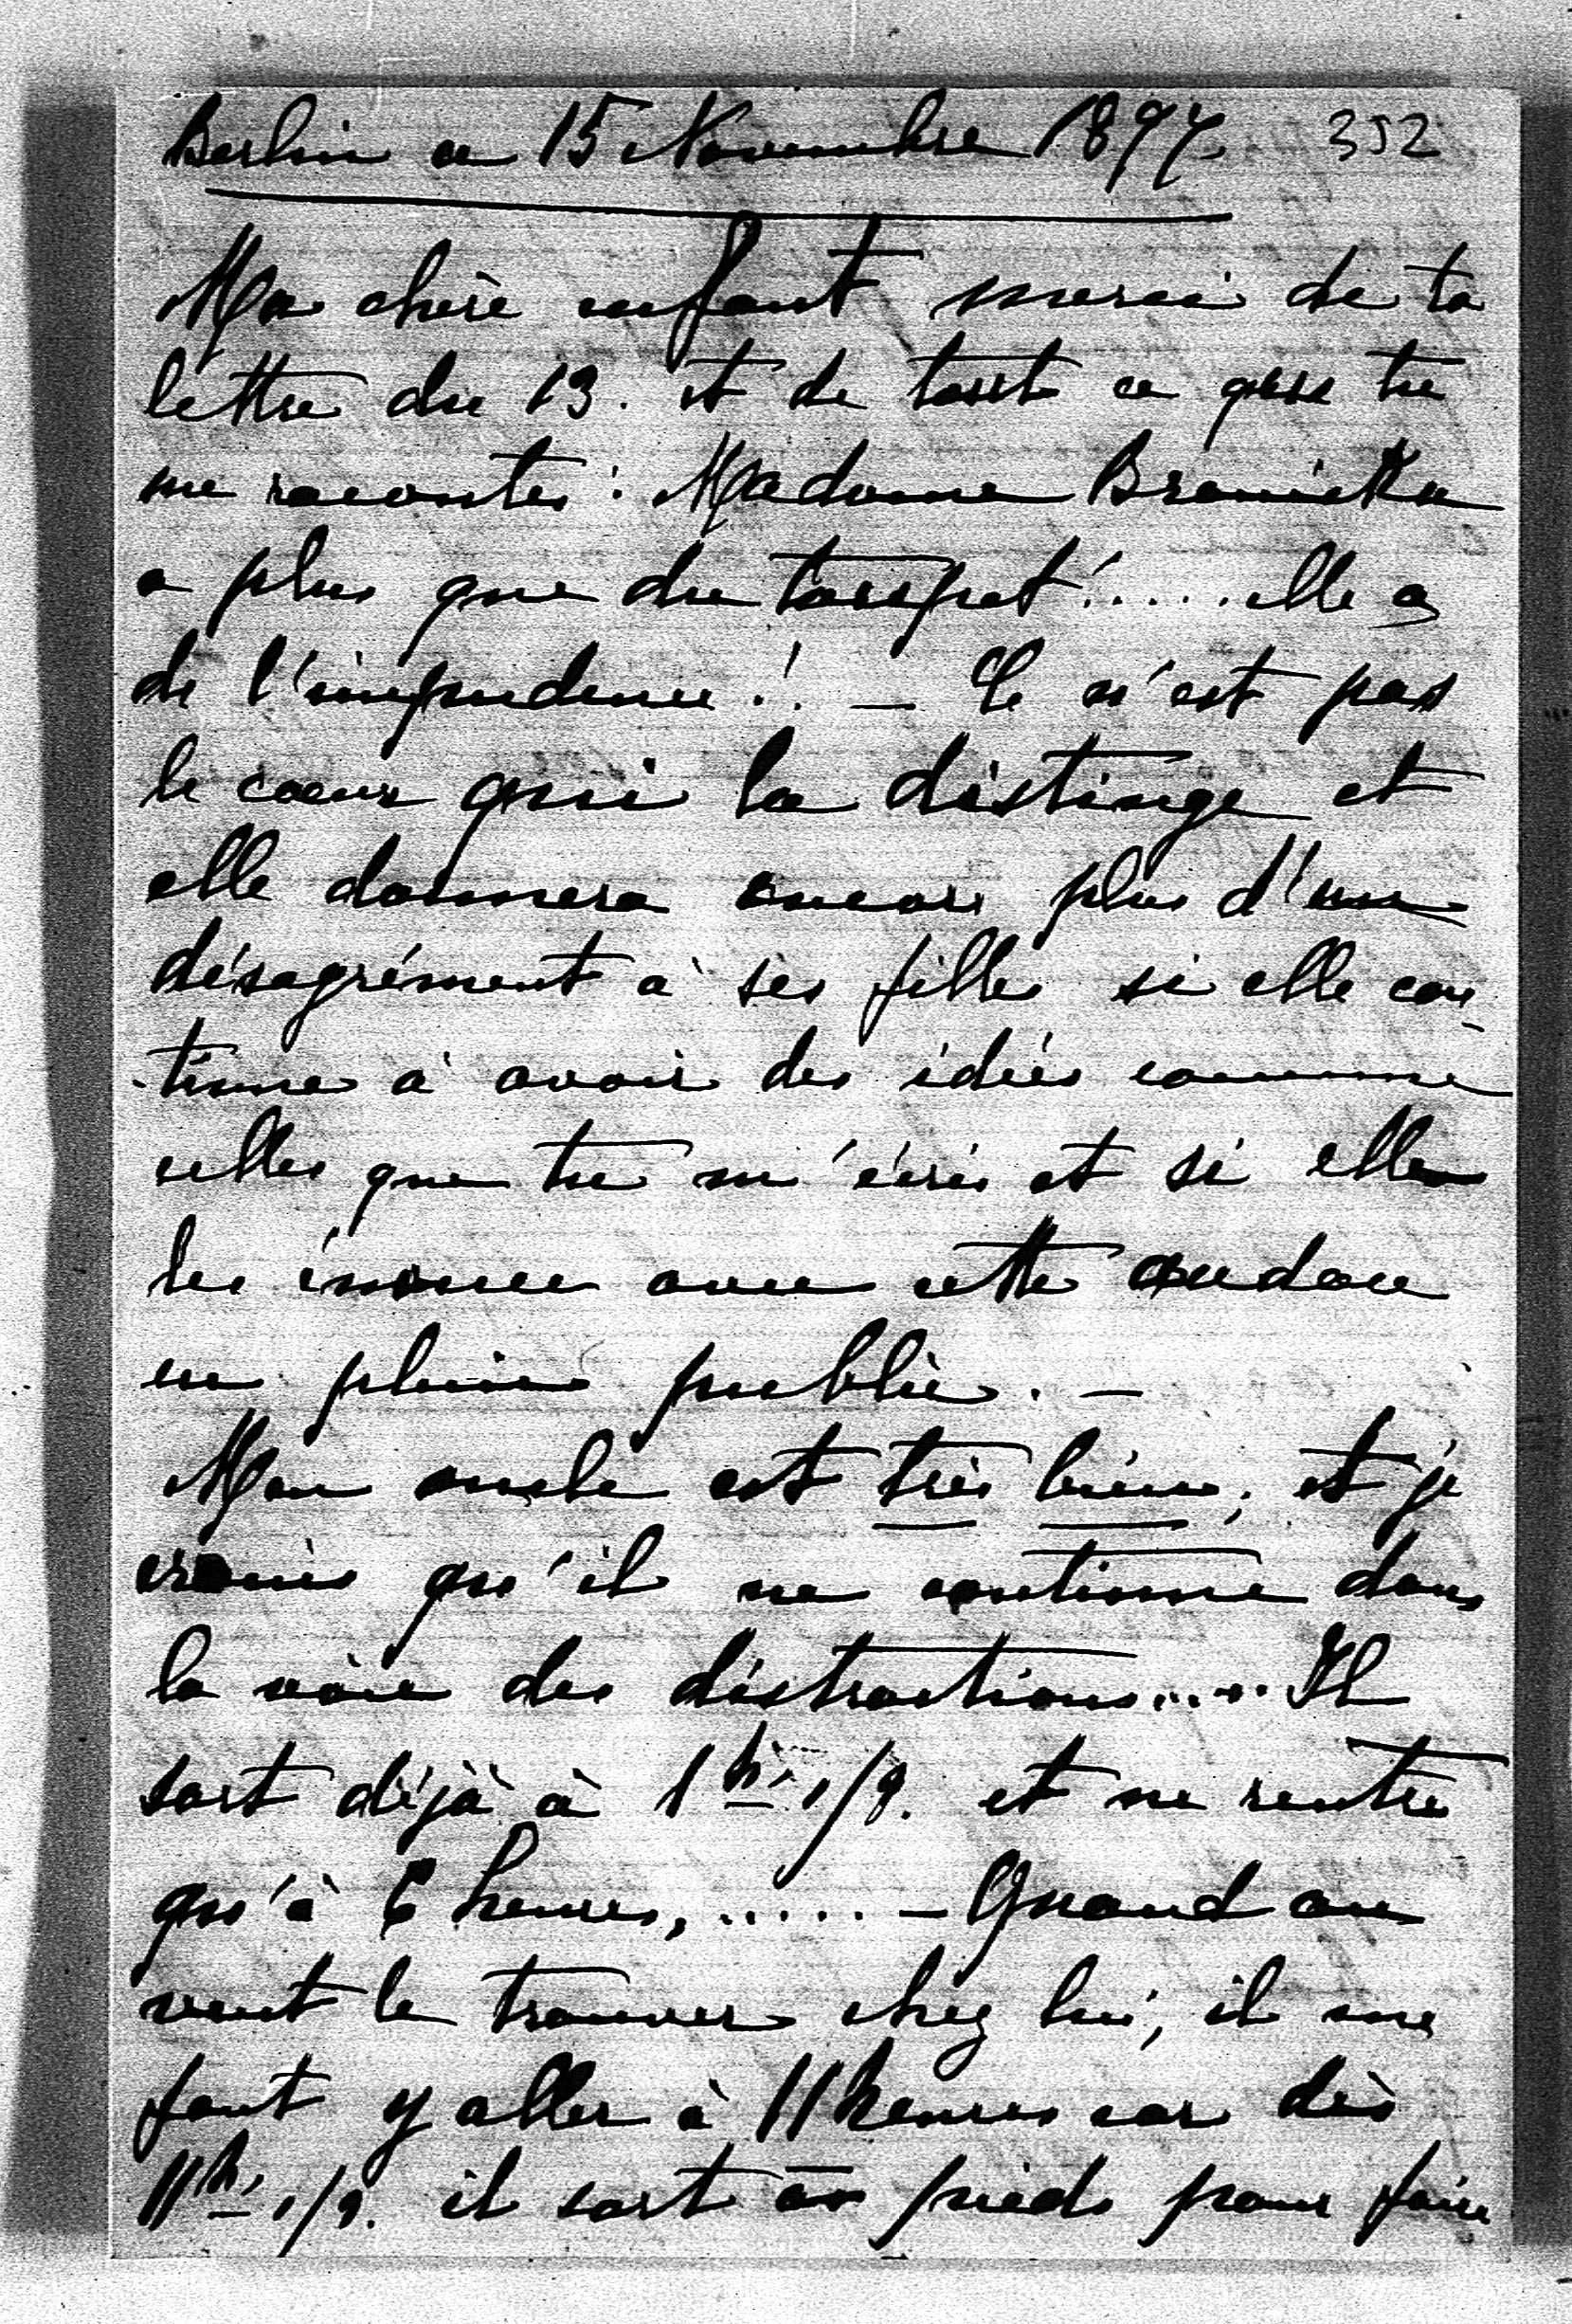 Berlin ce 15 Novembre 1897. 352
Ma chère enfant merci de ta
lettre du 13. et de tout ce que tu
me racontes: Madame Branicka
a plus que du toupet!..... elle a
de l'impudence!. — Ce n'est pas
le coeur qui la distinge et
elle donnera encore plus d'un
désagrément à ses filles si elle con
-tinue à avoir des idées comme
celles que tu m'écris et si elle
les énonce avec cette audace
en pleine public. —
Mon oncle est très bien, et je
crains qu'il ne continue dans
la voie des distractions..... Il
sort déjà à 1 h. 1/2. et ne rentre
qu'à 6 heures,..... — Quand on
veut le trouver chez lui, il me
faut y aller à 11 heures car dès
11 h. 1/2. il sort à pieds pour faire